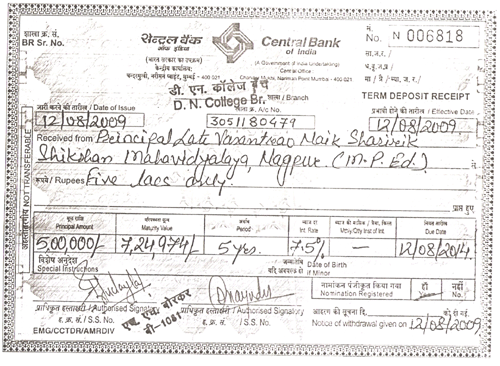 शाखा क्र. सं.
BR Sr. No.
सेन्ट्रल बैंक
ऑफ इंडिया
(भारत सरकार का उपक्रम)
केन्द्रीय कार्यालय:
चन्दरमुखी, नरीमन पॉइन्ट, मुम्बई - 400 021
Central Bank
of India
(A Government of India Undertaking)
Central Office:
Chander Mukhi, Nariman Point Mumbai - 400 021
नं.
No. N 006818
TERM DEPOSIT RECEIPT
डी. एन. कॉलेज ब्रँच
D. N. College Br. शाखा / Branch
जारी करने की तारीख / Date of Issue
12/08/2009
खाता क्र. / A/c No.
3051180479
प्रभावी होने की तारीख / Effective Date
12/08/2009
Received from Principal Late Vasantrao Naik Sharirik
Shikshan Mahavidyalaya, Nagpur (M.P.Ed.)
रुपये / Rupees Five lacs only.
प्राप्त हुए
अहस्तांतरणीय NOT TRANSFERABLE
मूल राशि Principal Amount
परिपक्वता मूल्य Maturity Value
अवधि Period
ब्याज दर Int. Rate
Mtly/Qtly Inst of Int.
नियत तारीख Due Date
500,000/- 7,24,974/- 5 yrs. 7.5% — 12/08/2014
विशेष अनुदेश
Special Instructions
जन्मतिथि Date of Birth
यदि अवयस्क हो if Minor
नामांकन पंजीकृत किया गया
Nomination Registered
हाँ नहीं
No.
एच. एल. बोरकर
बी-1081
प्राधिकृत हस्ताक्षरी / Authorised Signatory
ह. क्र. सं. / S.S. No.
प्राधिकृत हस्ताक्षरी / Authorised Signatory
ह. क्र. सं. / S.S. No.
आहरण की सूचना दि. को दी गई.
Notice of withdrawal given on 12/08/2009
EMG/CCTDR/AMRDIV